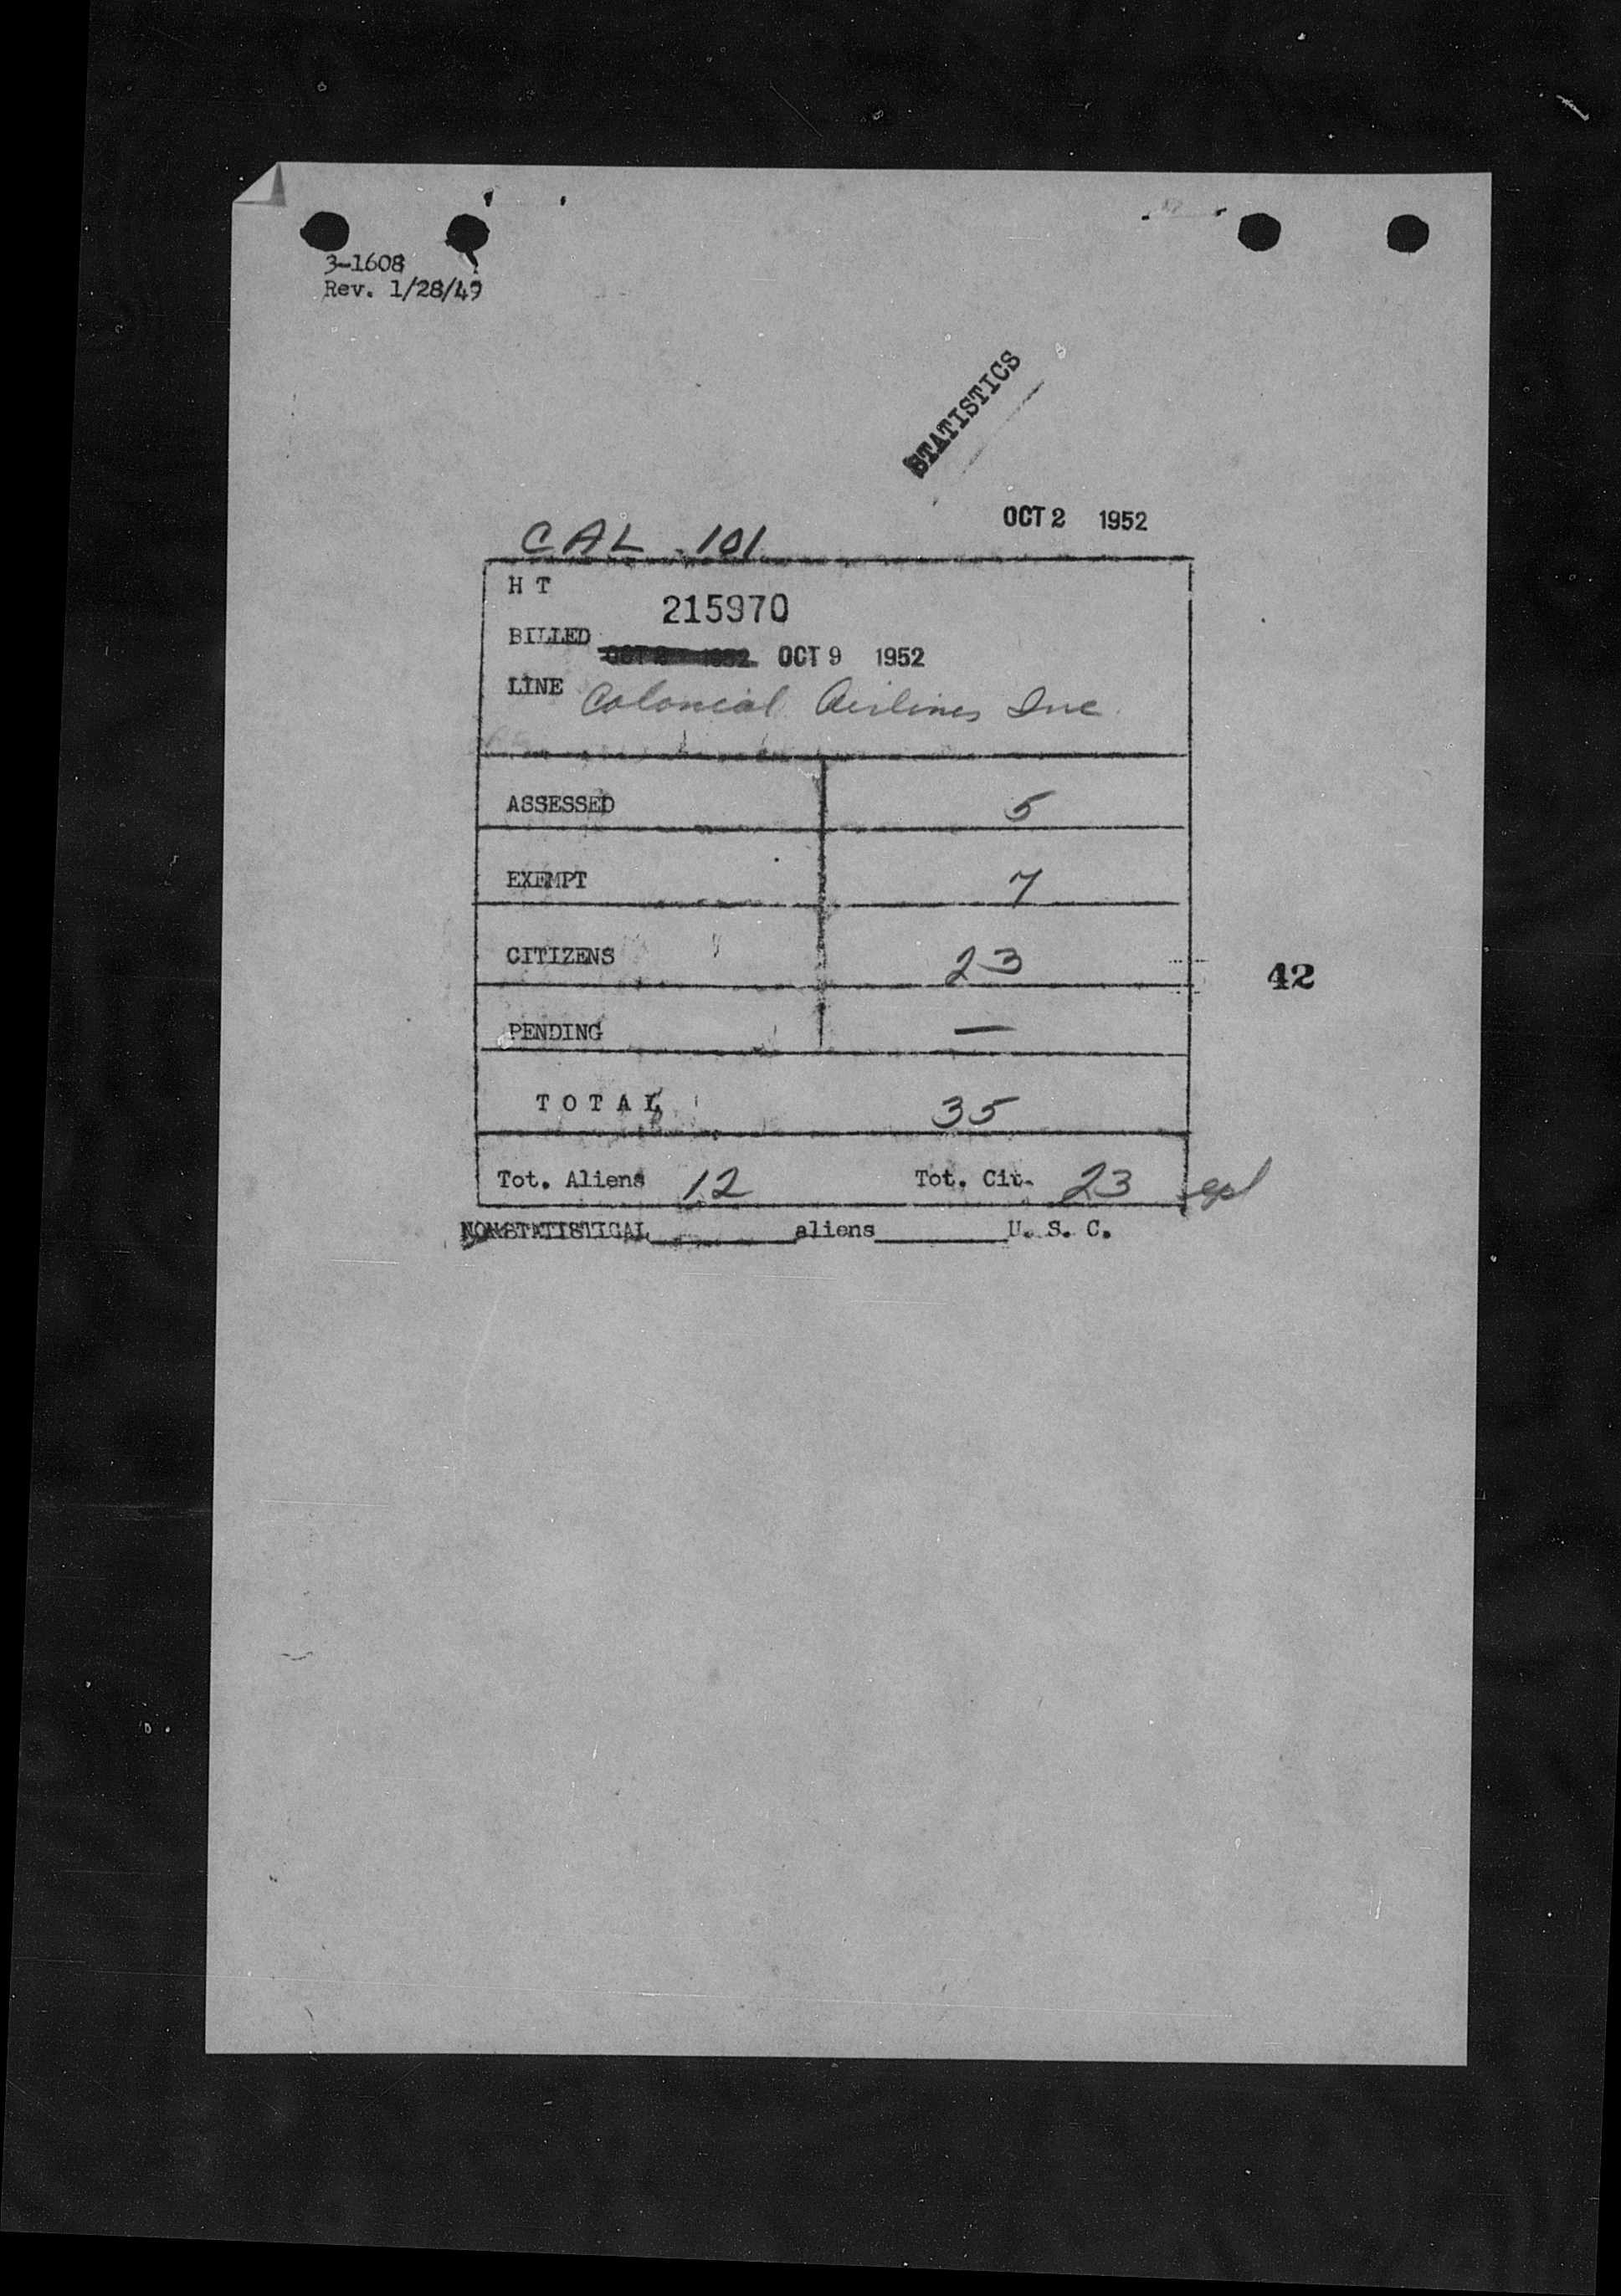 3-1608
Rev. 1/28/49
STATISTICS
OCT 2 1952
CAL - 101
H T
215970
BILLED OCT 2 1952 OCT 9 1952
LINE Colonial Airlines Inc.
ASSESSED 5
EXEMPT 7
CITIZENS 23
42
PENDING —
TOTAL 35
Tot. Aliens 12 Tot. Cit. 23
NONSTATISTICAL________aliens________U. S. C.